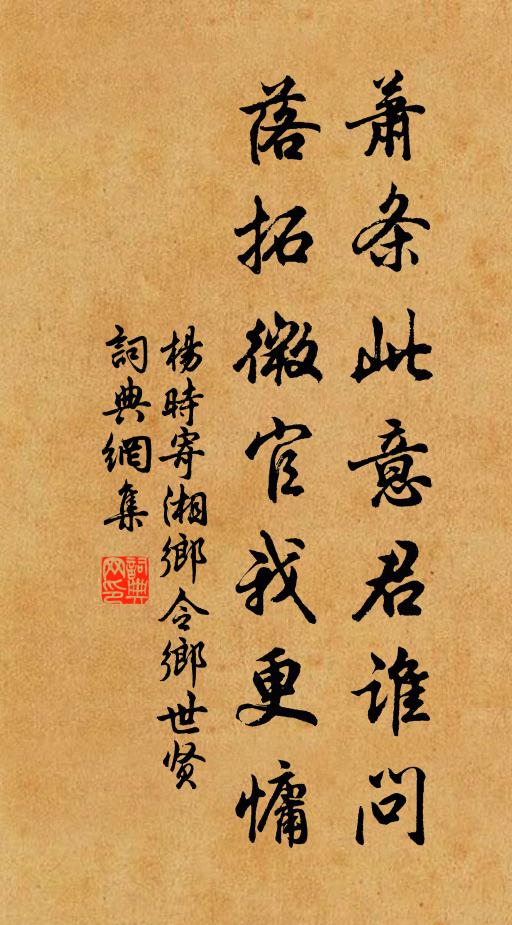 萧条此意君谁问
落拓微官我更慵
楊時寄湘鄉令鄉世贤
詞典網集
詞典网印